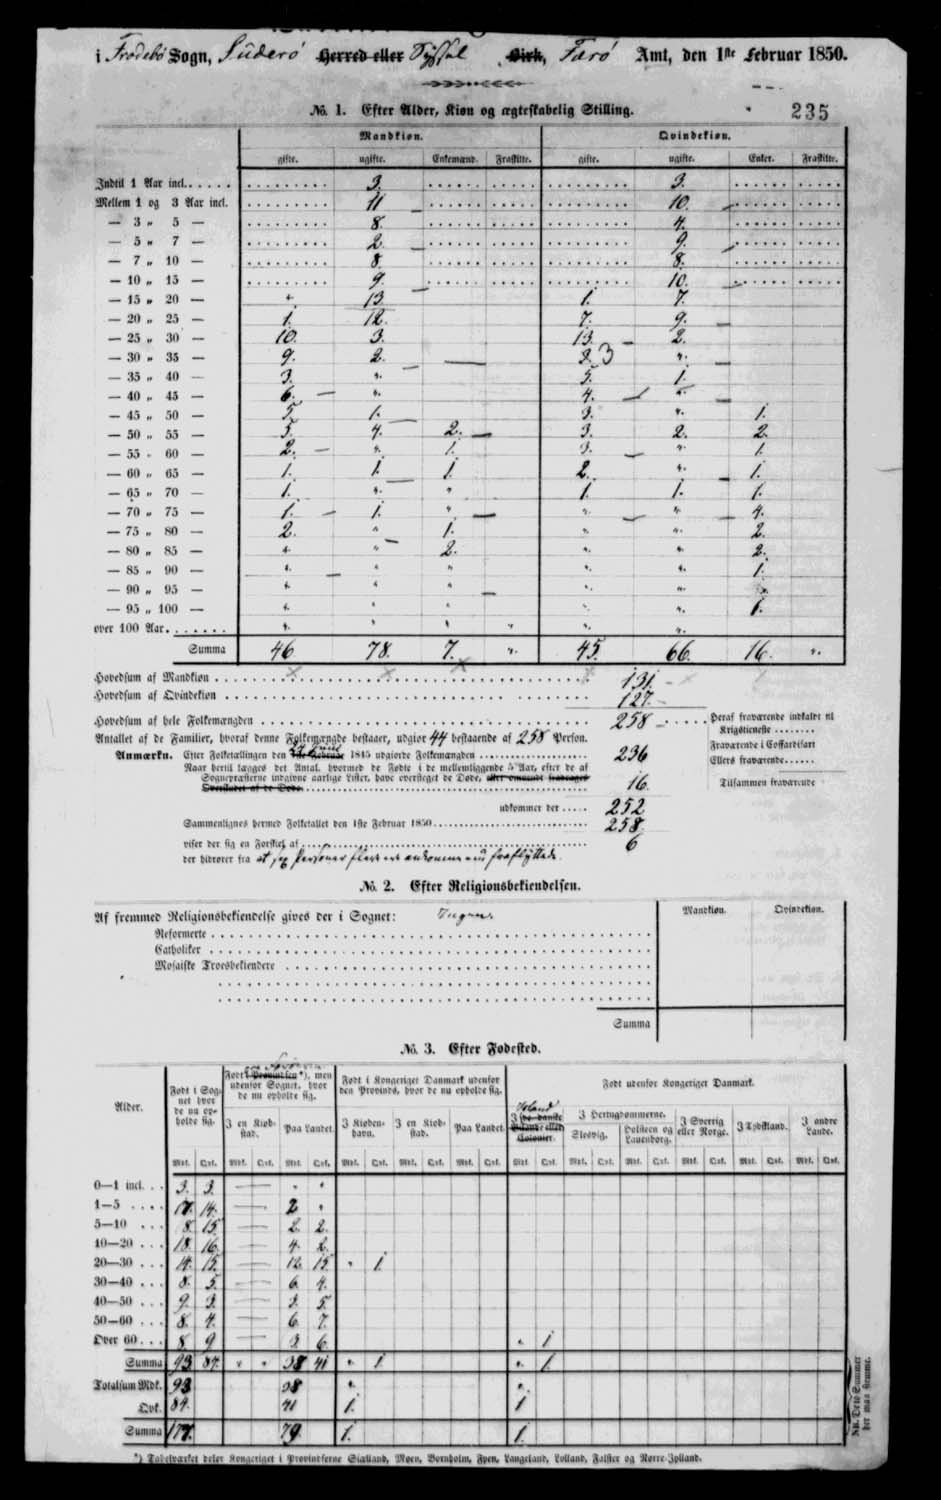 i Frodebö Sogn, Süderö Herred eller Syssel Birk, Farö Amt, den 1ste Februar 1850.
235
No. 1. Efter Alder, Kiøn og ægteskabelig Stilling.
Mandkiøn. Qvindekiøn.
gifte. ugifte. Enkemænd. Fraskilte. gifte. ugifte. Enker. Fraskilte.
Indtil 1 Aar incl. 3. 3.
Mellem 1 og 3 Aar incl. 11 10.
— 3 „ 5 — 8. 4.
— 5 „ 7 — 2. 9.
— 7 „ 10 — 8. 8.
— 10 „ 15 — 9. 10.
— 15 „ 20 — „ 13. 1. 7.
— 20 „ 25 — 1. 12. 7. 9.
— 25 „ 30 — 10. 3. 13. 2.
— 30 „ 35 — 9. 2. 3 „
— 35 „ 40 — 3. „ 5. 1.
— 40 „ 45 — 6. „ 4. „
— 45 „ 50 — 5. 1. 3. „ 1.
— 50 „ 55 — 5. 4. 2. 3. 2. 2.
— 55 „ 60 — 2. „ 1. 3. „ 1.
— 60 „ 65 — 1. 1. 1. 2. „ 1.
— 65 „ 70 — 1. „ „ 1. 1. 1.
— 70 „ 75 — 1. 1. „ „ „ 4.
— 75 „ 80 — 2. „ 1. „ „ 2.
— 80 „ 85 — „ „ 2. „ „ 2.
— 85 „ 90 — „ „ „ „ „ 1.
— 90 „ 95 — „ „ „ „ „
— 95 „ 100 — „ „ „ „ „ 1.
over 100 Aar. „ „ „ „ „ „
Summa 46 78. 7. „ 45. 66. 16. „
Hovedsum af Mandkiøn 131.
Hovedsum af Qvindekiøn 127.
Hovedsum af hele Folkemængden 258
Heraf fraværende indkaldt til Krigstieneste
Antallet af de Familier, hvoraf denne Folkemængde bestaaer, udgiør 44 bestaaende af 258 Person.
Fraværende i Coffardifart
Anmærkn. Efter Folketællingen den 1845 udgiorde Folkemængden 236
Ellers fraværende
Naar hertil lægges det Antal, hvormed de Fødte i de mellemliggende 5 Aar, efter de af
Sognepræsterne indgivne aarlige Lister, have oversteget de Døde, eller omvendt fradrages
Overskudet af de Døde 16.
Tilsammen fraværende
udkommer der 252
Sammenlignes hermed Folketallet den 1ste Februar 1850 258.
viser der sig en Forskiel af 6
der hidrører fra at sex Personer flere ere ankomne end fraflyttede.
No. 2. Efter Religionsbekiendelsen.
Af fremmed Religionsbekiendelse gives der i Sognet: Ingen Mandkiøn. Qvindekiøn.
Reformerte
Catholiker
Mosaiske Troesbekiendere
Summa
No. 3. Efter Fødested.
Alder.
Født i Sognet hvor de nu opholde sig.
Født i Provindsen *), men udenfor Sognet, hvor de nu opholde sig.
Født i Kongeriget Danmark udenfor den Provinds, hvor de nu opholde sig.
Født udenfor Kongeriget Danmark.
I en Kiøbstad. Paa Landet. I Kiøbenhavn. I en Kiøbstad. Paa Landet. Island I de danske Bilande eller Colonier. I Hertugdømmerne. Slesvig. Holsteen og Lauenborg. I Sverrig eller Norge. I Tydskland. I andre Lande.
Mdk. Qvk. Mdk. Qvk. Mdk. Qvk. Mdk. Qvk. Mdk. Qvk. Mdk. Qvk. Mdk. Qvk. Mdk. Qvk. Mdk. Qvk. Mdk. Qvk. Mdk. Qvk. Mdk. Qvk.
0—1 incl. 3. 3. — „ „
1—5 17. 14. — 2 „
5—10 8. 15. — 2. 2.
10—20 18. 16. — 4. 2.
20—30 14. 15. — 12. 15. „ 1.
30—40 8. 5. — 6. 4.
40—50 9. 3. — 3. 5.
50—60 8. 4. — 6. 7.
Over 60 8. 9 — 3 6. „ 1
Summa 93. 84. „ „ 38 41 „ 1. „ 1.
Totalsum Mdk. 93 38 „ „
Qvk. 84. 41 1. 1
Summa 177. 79. 1. 1.
NB. Deto Summer her maa stemme.
*) Tabelværket deler Kongeriget i Provindserne Siælland, Møen, Bornholm, Fyen, Langeland, Lolland, Falster og Nørre-Jylland.